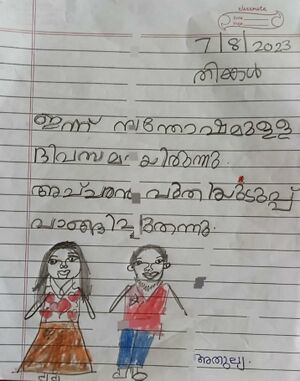 classmate
7/8/2023
തിങ്കൾ
ഇന്ന് സന്തോഷമുള്ള
ദിവസമായിരുന്നു.
അച്ഛൻ പുതിയുടുപ്പ്
വാങ്ങിച്ചുതന്നു.
അതുല്യ